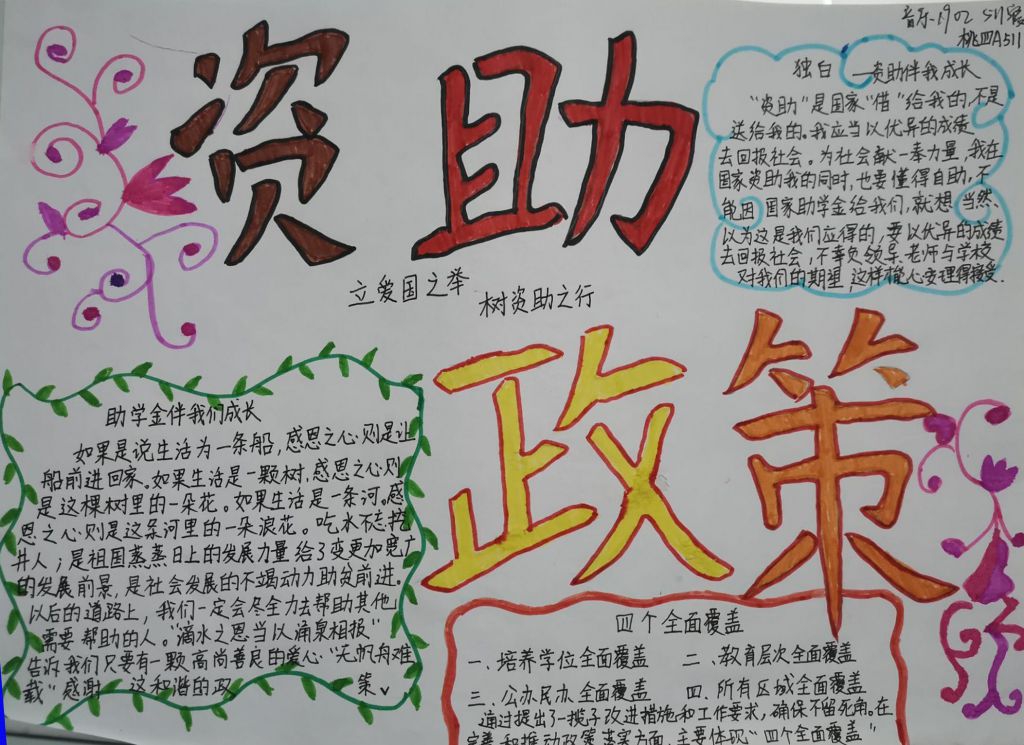 音乐1902
桃四A511
资助
政策
立爱国之举
树资助之行
独白——资助伴我成长
“资助”是国家“借”给我的,不是
送给我的。我应当以优异的成绩
去回报社会。为社会献一奉力量,我在
国家资助我的同时,也要懂得自助,不
能因国家助学金给我们,就想当然、
以为这是我们应得的,要以优异的成绩
去回报社会,不辜负领导、老师与学校
对我们的期望,这样心安理得接受.
助学金伴我们成长
如果是说生活为一条船,感恩之心则是让
船前进回家。如果生活是一颗树,感恩之心则
是这棵树里的一朵花。如果生活是一条河,感
恩之心则是这条河里的一朵浪花。吃水不忘挖
井人;是祖国蒸蒸日上的发展力量给了变更加宽广
的发展前景,是社会发展的不竭动力助贫前进。
以后的道路上,我们一定会尽全力去帮助其他
需要帮助的人。“滴水之恩当以涌泉相报”
告诉我们只要有一颗高尚善良的爱心“无帆舟难
载”感谢 这和谐的政 策
四个全面覆盖
一、培养学位全面覆盖 二、教育层次全面覆盖
三、公办民办全面覆盖 四、所有区域全面覆盖
通过提出了一揽子改进措施和工作要求,确保不留死角。在
完善和推动政策落实方面,主要体现“四个全面覆盖”